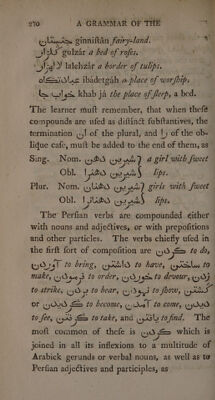 270 A GRAMMAR OF THE
جنستان ginnistān fairy-land.
گلزار gulzār a bed of roses.
لاله زار lalehzār a border of tulips.
عبادتگاه ibādetgāh a place of worship,
خواب جا khab jā the place of sleep, a bed.
The learner must remember, that when these
compounds are used as distinct substantives, the
termination ان of the plural, and را of the ob-
lique case, must be added to the end of them, as
Sing. Nom. شیرین دهن } a girl with sweet
Obl. شیرین دهنرا } lips.
Plur. Nom. شیرین دهنان } girls with sweet
Obl. شیرین دهنانرا } lips.
The Persian verbs are compounded either
with nouns and adjectives, or with prepositions
and other particles. The verbs chiefly used in
the first sort of composition are کردن to do,
آوردن to bring, داشتن to have, ساختن to
make, فرمودن to order, خوردن to devour,
زدن to strike, بردن to bear, نمودن to show, گشتن
or گردیدن to become, آمدن to come, دیدن
to see, گرفتن to take, and یافتن to find. The
most common of these is کردن which is
joined in all its inflexions to a multitude of
Arabick gerunds or verbal nouns, as well as to
Persian adjectives and participles, as